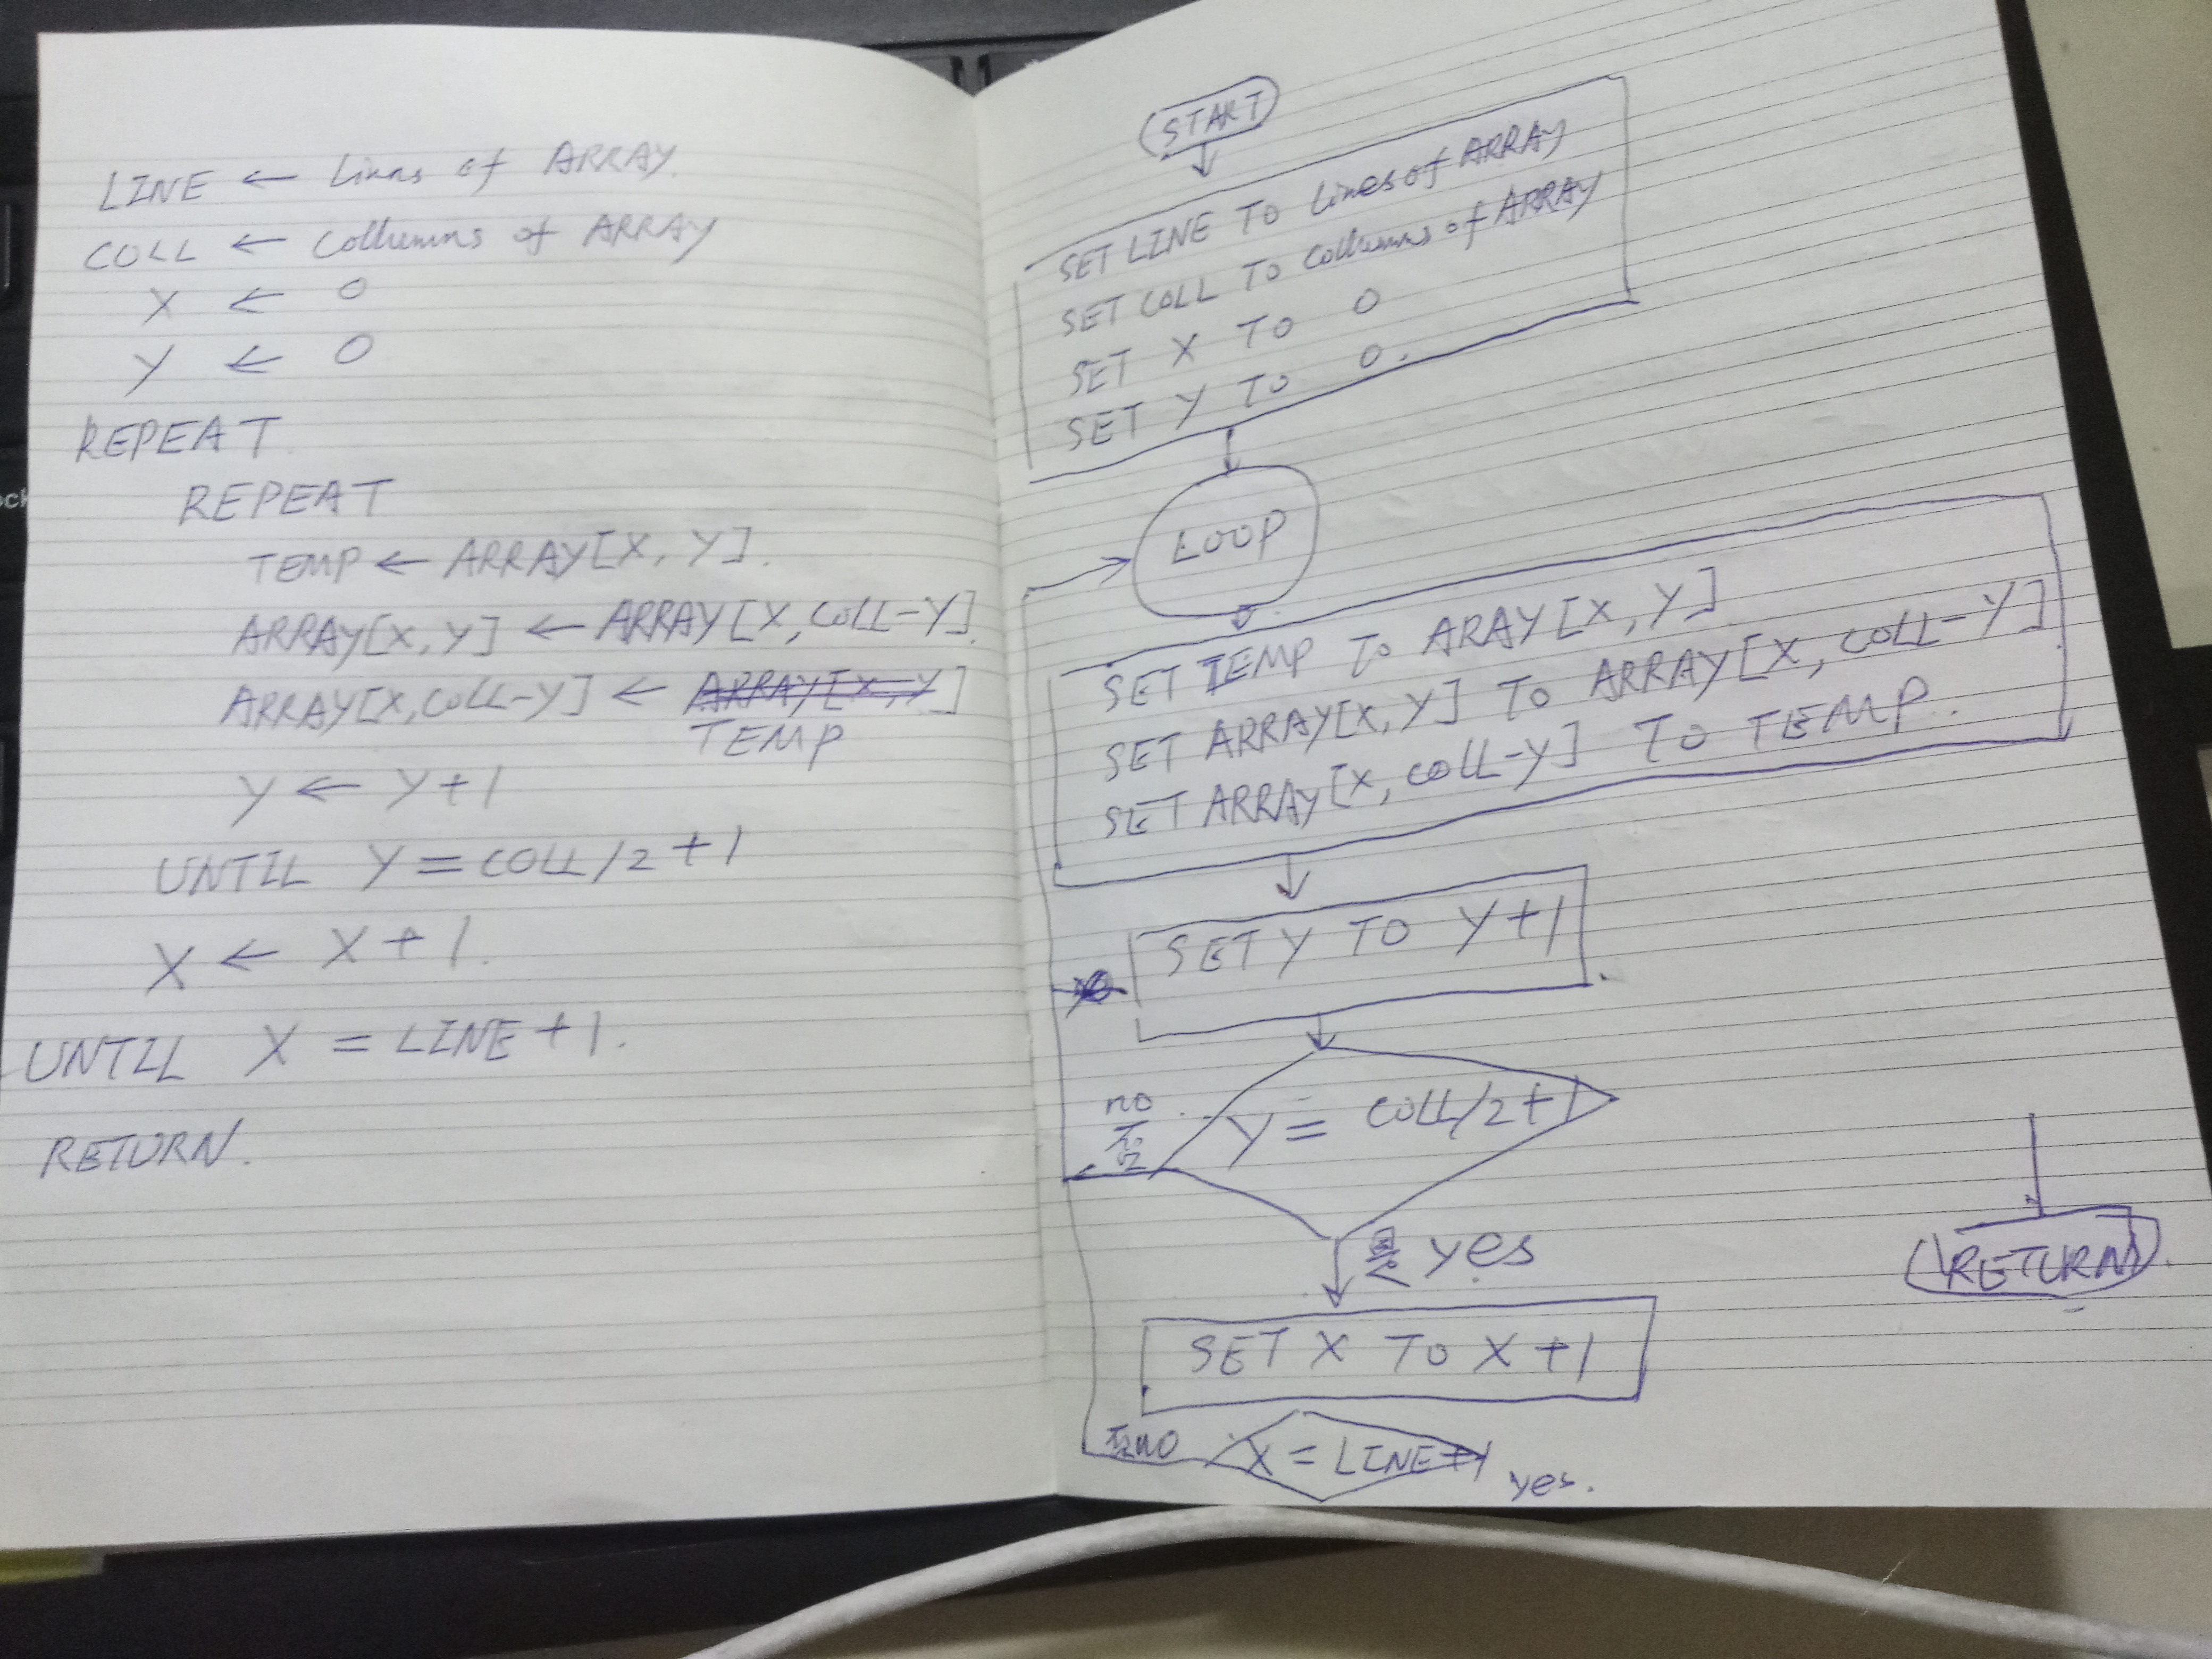 LINE ← Lines of ARRAY.
COLL ← Collumns of ARRAY
X ← 0
Y ← 0
REPEAT
REPEAT
TEMP ← ARRAY[X, Y].
ARRAY[X, Y] ← ARRAY[X, COLL-Y].
ARRAY[X, COLL-Y] ← ARRAY[X, Y]
TEMP
Y ← Y+1
UNTIL Y = COLL/2+1
X ← X+1.
UNTIL X = LINE+1.
RETURN.
START
SET LINE TO Lines of ARRAY
SET COLL TO Collumns of ARRAY
SET X TO 0
SET Y TO 0.
LOOP
SET TEMP TO ARAY[X, Y]
SET ARRAY[X, Y] TO ARRAY[X, COLL-Y]
SET ARRAY[X, COLL-Y] TO TEMP.
SET Y TO Y+1
no
否
Y = COLL/2+1
是 yes
SET X TO X+1
否no X = LINE+1 yes.
RETURN.